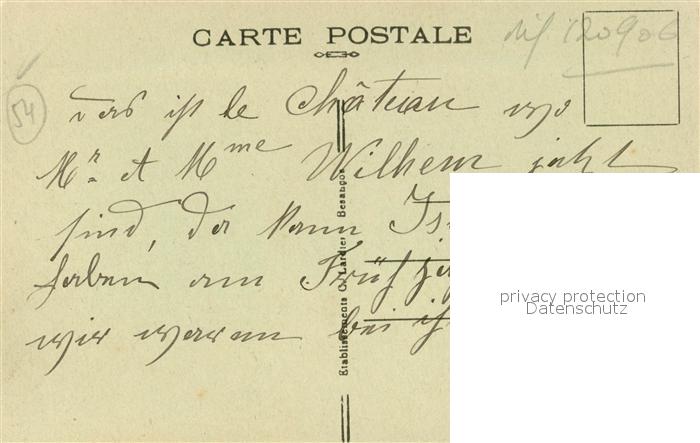 CARTE POSTALE
120906
54
das ist le Château wo
Mr. et Mme Wilhem jetzt
sind, da kann
haben am Früh
wir waren bei
Etablissements C. Lardier Besançon
privacy protection
Datenschutz